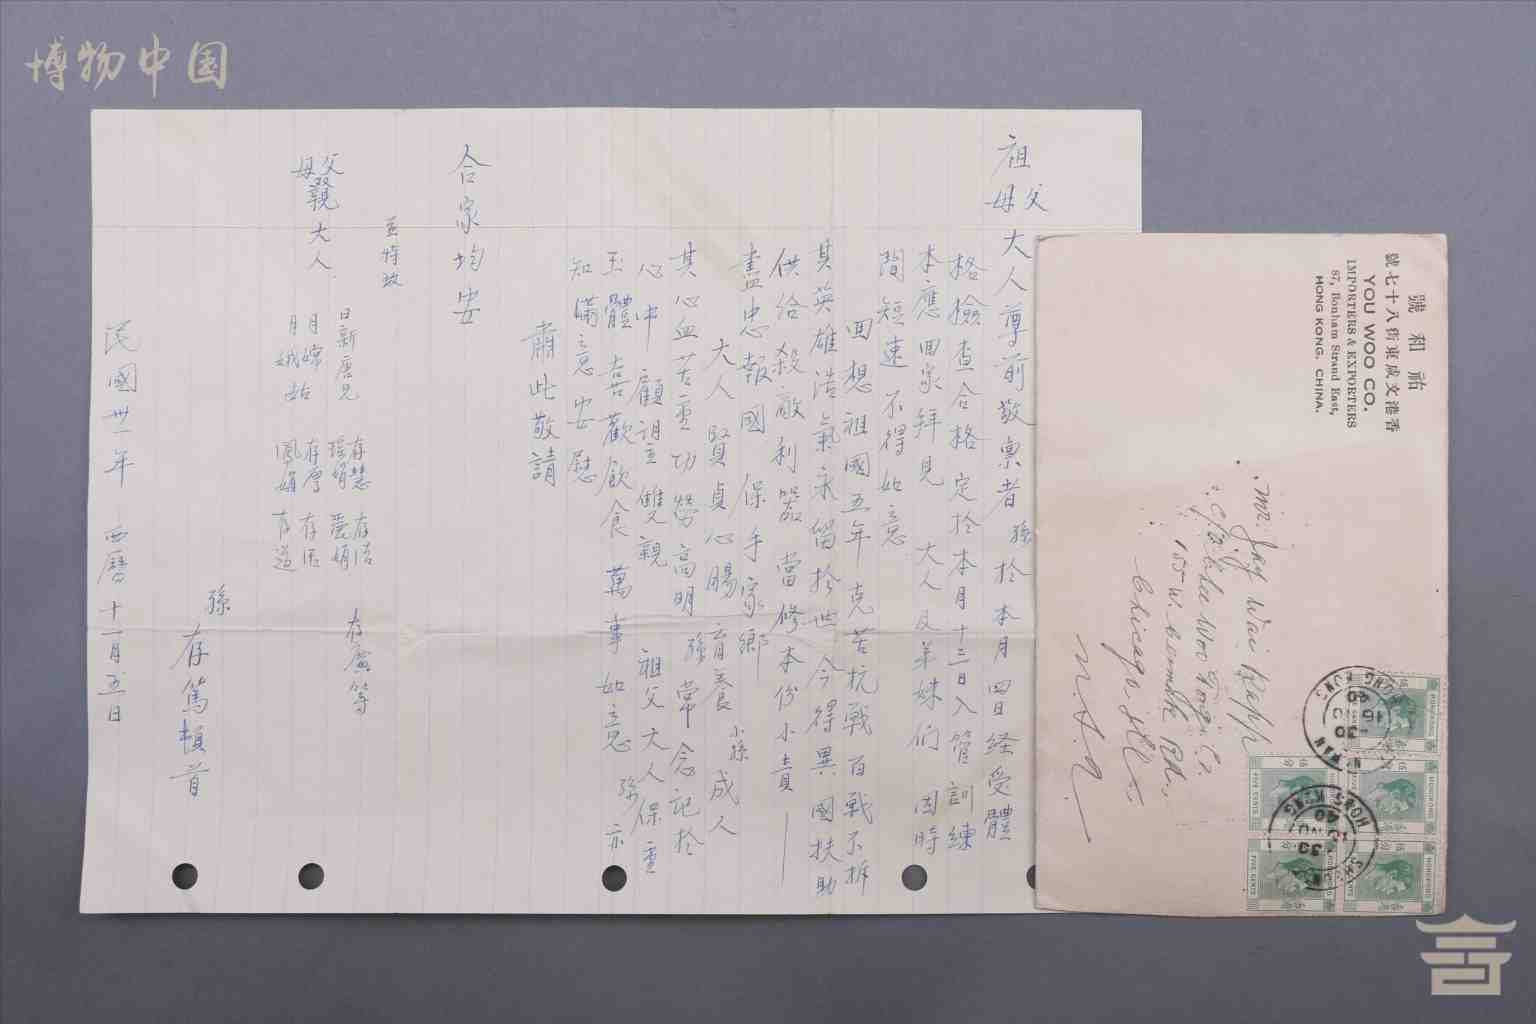 博物中国
祖父母大人尊前敬禀者 孫於本月四日経受體
格檢查合格定於本月十三日入管訓練
本應回家拜見 大人及弟妹们 因時
間短速 不得如意
回想祖國五年克苦抗戰百戰不折
其英雄浩氣永留於世 今得異國扶助
供给殺敵利器 當修本份小責
盡忠報國 保手家鄉
大人賢貞心腸 育養 小孫 成人
其心血苦重功勞高明 孫常念記於
心中 顧詛立雙親 祖父大人保重
玉體 喜歡飲食 萬事如意 孫亦
知滿意安慰
肅此敬請
合家均安
並特致
父母親大人
日新唐兄
月嫦姑
月娥姑
存慧 存浩
瑶娟 愛娟
存厚
鳳娟 存道
存廣等
孫
存篤頓首
民國卅一年 西曆十一月五日
號和祐
香港文咸東街八十七號
YOU WOO CO.
IMPORTERS & EXPORTERS
87, Bonham Strand East,
HONG KONG, CHINA.
Mr. Jay Wai Kapp
155 W. Cermak Rd.
Chicago, Ill.
U.S.A.
HONGKONG
FIVE CENTS
HONG KONG